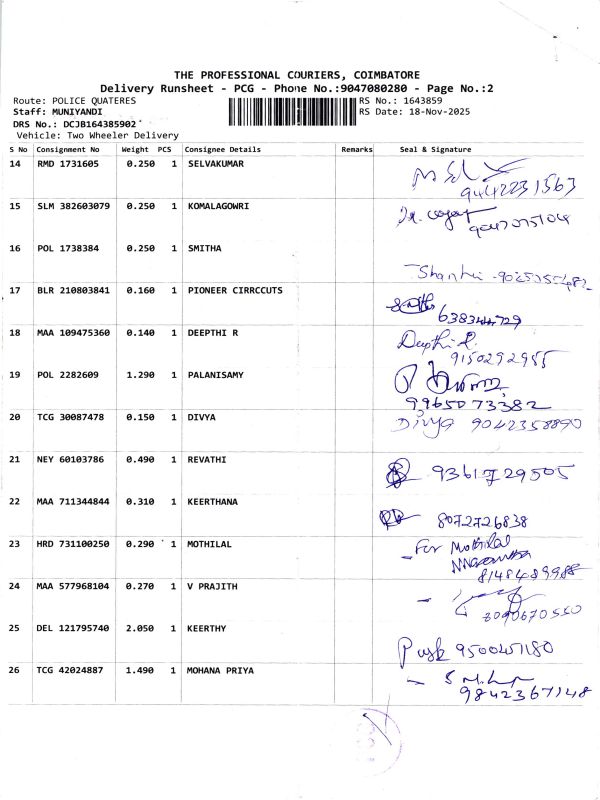 THE PROFESSIONAL COURIERS, COIMBATORE
Delivery Runsheet - PCG - Phone No.:9047080280 - Page No.:2
Route: POLICE QUATERES
RS No.: 1643859
Staff: MUNIYANDI
RS Date: 18-Nov-2025
DRS No.: DCJB164385902
Vehicle: Two Wheeler Delivery
S No Consignment No Weight PCS Consignee Details Remarks Seal & Signature
14 RMD 1731605 0.250 1 SELVAKUMAR
9442231563
15 SLM 382603079 0.250 1 KOMALAGOWRI
16 POL 1738384 0.250 1 SMITHA
Shanthi
17 BLR 210803841 0.160 1 PIONEER CIRRCCUTS
638344729
18 MAA 109475360 0.140 1 DEEPTHI R
Deepthi R.
9150292955
19 POL 2282609 1.290 1 PALANISAMY
9965073382
20 TCG 30087478 0.150 1 DIVYA
Divya 9042358890
21 NEY 60103786 0.490 1 REVATHI
9361729505
22 MAA 711344844 0.310 1 KEERTHANA
8072726838
23 HRD 731100250 0.290 1 MOTHILAL
- For Mothilal
8148489988
24 MAA 577968104 0.270 1 V PRAJITH
25 DEL 121795740 2.050 1 KEERTHY
9500451180
26 TCG 42024887 1.490 1 MOHANA PRIYA
9842367148